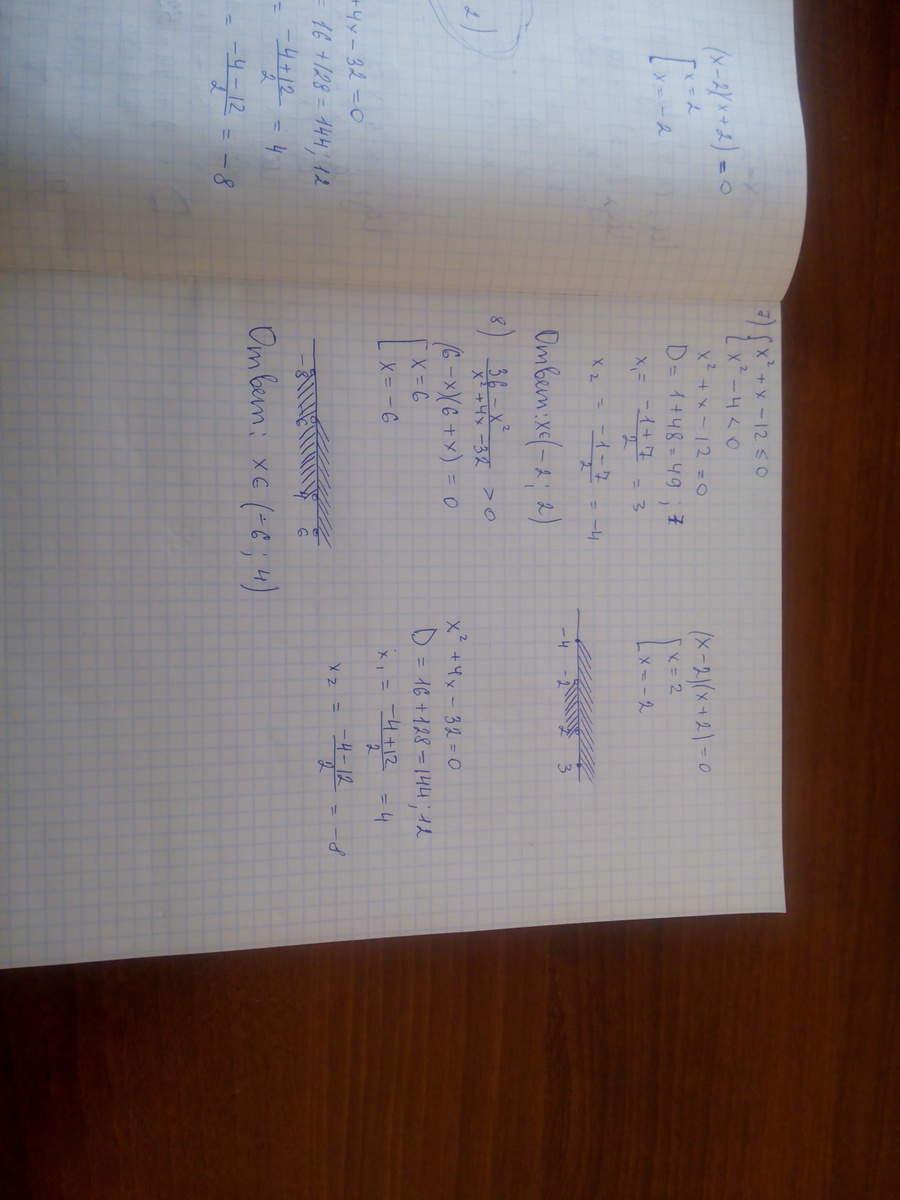 (x-2)(x+2) = 0
[ x = 2
x = -2
2)
+4x - 32 = 0
= 16 + 128 = 144; 12
= (-4+12)/2 = 4
= (-4-12)/2 = -8
7) { x² + x - 12 ≤ 0
x² - 4 < 0
x² + x - 12 = 0
D = 1 + 48 = 49; 7
x₁ = (-1+7)/2 = 3
x₂ = (-1-7)/2 = -4
(x-2)(x+2) = 0
[ x = 2
x = -2
-4 -2 2 3
Ответ: x∈(-2; 2)
8) (36-x²)/(x²+4x-32) > 0
(6-x)(6+x) = 0
[ x = 6
x = -6
x² + 4x - 32 = 0
D = 16 + 128 = 144; 12
x₁ = (-4+12)/2 = 4
x₂ = (-4-12)/2 = -8
-8 -6 4 6
Ответ: x∈(-6; 4)